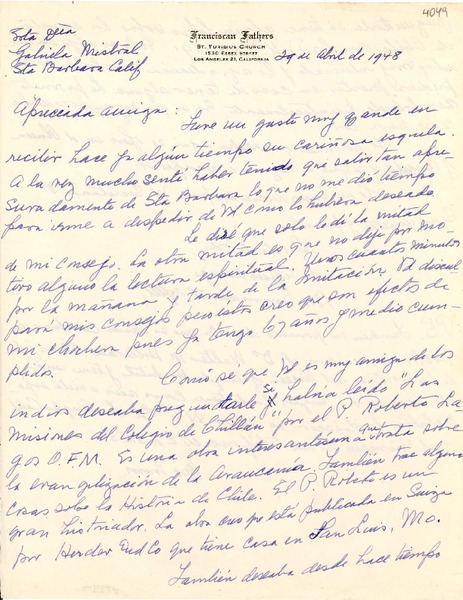 4049
Franciscan Fathers
ST. TURIBIUS CHURCH
1530 ESSEX STREET
LOS ANGELES 21, CALIFORNIA
Srta Dña
Gabriela Mistral
Sta Barbara Calif
29 de Abril de 1948
Apreciada amiga:
Tuve un gusto muy grande en
recibir hace ya algún tiempo su cariñosa esquela.
A la vez mucho sentí haber tenido que salir tan apre
suradamente de Sta Barbara lo que no me dió tiempo
para irme a despedir de Vd como lo hubiera deseado
Le diré que solo le di la mitad
de mi consejo. La otra mitad es que no deje por mo-
tivo alguno la lectura espiritual. Unos cuantos minutos
por la mañana y tarde de la Imitación. Vd discul
pará mis consejos pues estos creo que son efectos de
mi chochera pues ya tengo 67 años y medio cum
plidos.
Como se que Vd es muy amiga de los
indios deseaba preguntarle si había leido "Las
Misiones del Colegio de Chillán" por el P. Roberto La
gos O.F.M. Es una obra interesantísima que trata sobre
la evangelización de la Araucanía. También trae algunas
cosas sobre la Historia de Chile. El P. Roberto es un
gran historiador. La obra creo que está publicada en Suiza
por Herder and Co que tiene casa en San Luis, Mo.
También deseaba desde hace tiempo